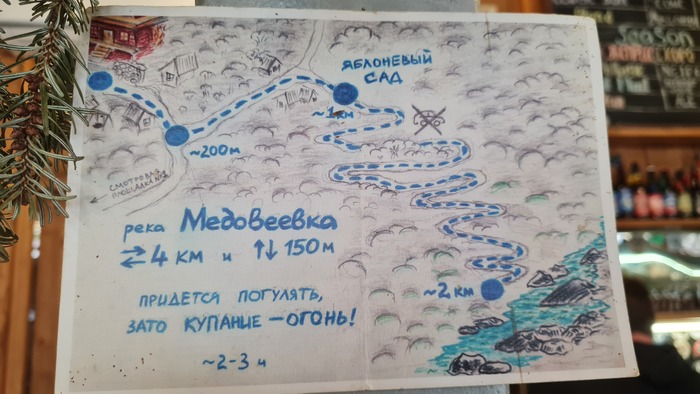 ЯБЛОНЕВЫЙ
САД
~1 км
~200м
СМОТРОВАЯ
ПЛОЩАДКА №1
река Медовеевка
⇄ 4 км и ↑↓ 150 м
~2 км
ПРИДЕТСЯ ПОГУЛЯТЬ,
ЗАТО КУПАНИЕ — ОГОНЬ!
~2-3 ч
Season